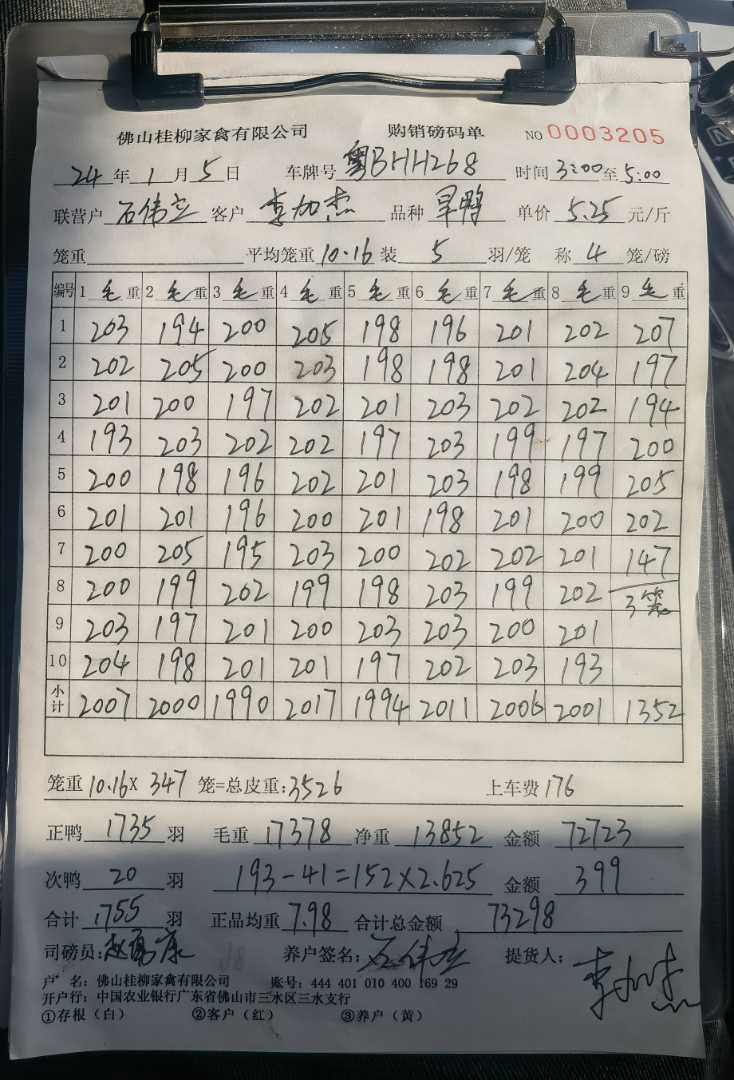 佛山桂柳家禽有限公司 购销磅码单 NO 0003205
24 年 1 月 5 日 车牌号 粤BHH268 时间 3:00 至 5:00
联营户 石伟立 客户 李加杰 品种 旱鸭 单价 5.25 元/斤
笼重 平均笼重 10.16 装 5 羽/笼 称 4 笼/磅
编号 1 毛重 2 毛重 3 毛重 4 毛重 5 毛重 6 毛重 7 毛重 8 毛重 9 毛重
1 203 194 200 205 198 196 201 202 207
2 202 205 200 203 198 198 201 204 197
3 201 200 197 202 201 203 202 202 194
4 193 203 202 202 197 203 199 197 200
5 200 198 196 202 201 203 198 199 205
6 201 201 196 200 201 198 201 200 202
7 200 205 195 203 200 202 202 201 147
8 200 199 202 199 198 203 199 202 3笼
9 203 197 201 200 203 203 200 201
10 204 198 201 201 197 202 203 193
小计 2007 2000 1990 2017 1994 2011 2006 2001 1352
笼重 10.16 x 347 笼=总皮重: 3526 上车费 176
正鸭 1735 羽 毛重 17378 净重 13852 金额 72723
次鸭 20 羽 193-41=152×2.625 金额 399
合计 1755 羽 正品均重 7.98 合计总金额 73298
司磅员: 养户签名: 石伟立 提货人: 李加杰
户 名: 佛山桂柳家禽有限公司 账号: 444 401 010 400 169 29
开户行: 中国农业银行广东省佛山市三水区三水支行
①存根（白） ②客户（红） ③养户（黄）